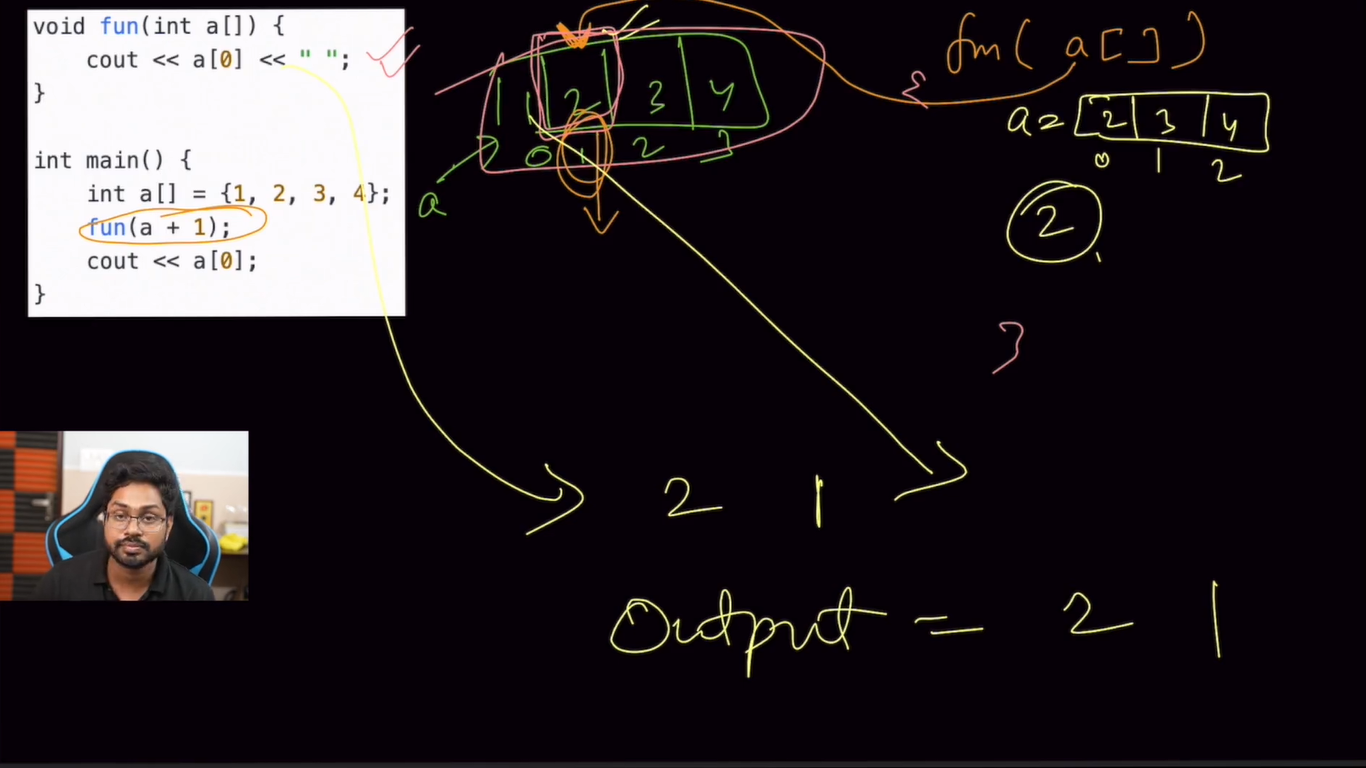 void fun(int a[]) {
cout << a[0] << " ";
}
int main() {
int a[] = {1, 2, 3, 4};
fun(a + 1);
cout << a[0];
}
1 2 3 4
0 1 2 3
a
fun( a [ ] )
{
a = 2 3 4
0 1 2
2
}
2 1
Output = 2 1